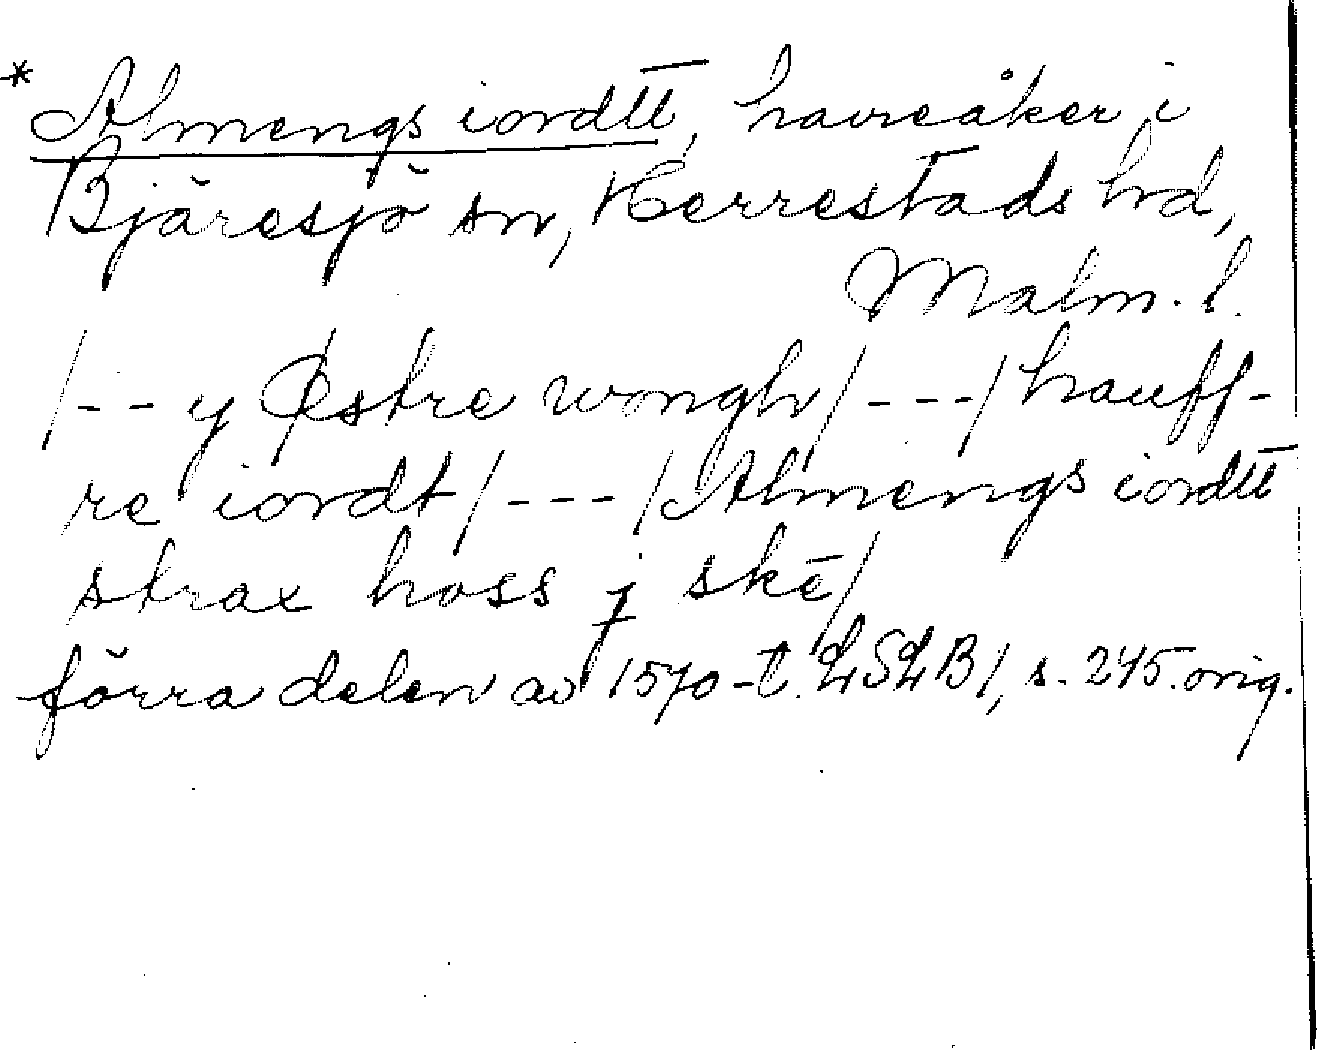 * Almengs iordtt, havreåker i
Bjäresjö sn, Herrestads hd,
Malm. l.
/--y Østre wongh/---/hauff-
re iordt/---/Almengs iordtt
strax hoss j skē/
förra delen av 1570-t. LSLB1, s. 245. orig.